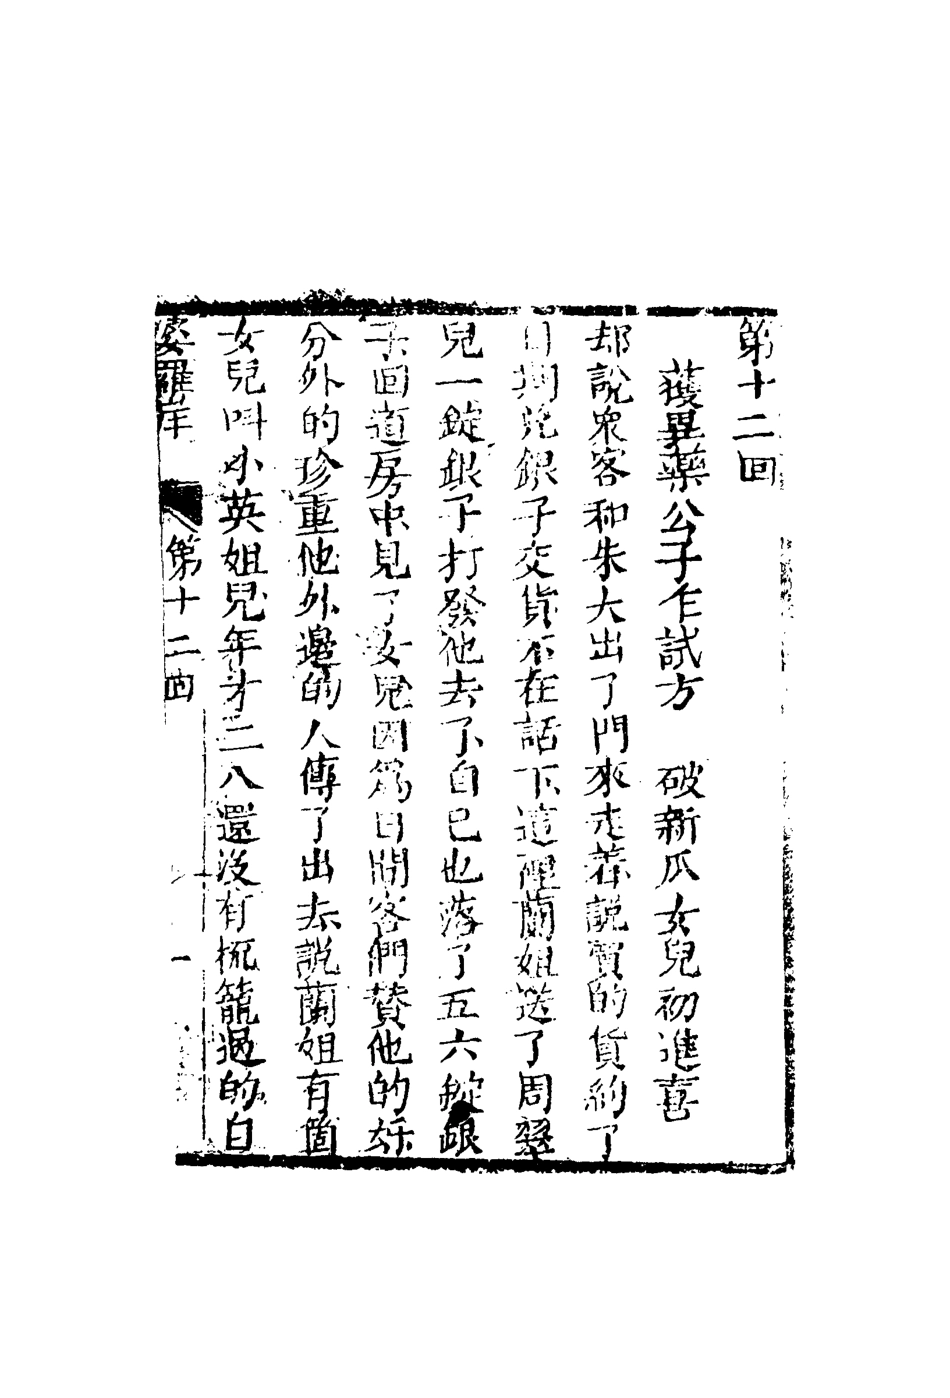 第十二回
獲異藥公子乍試方　破新瓜女兒初進喜
却說衆客和朱大出了門來走着說買的貨約了
日期兌銀子交貨不在話下這裡蘭姐送了周翠
兒一錠銀子打發他去了自已也落了五六錠銀
子回道房中見了女兒因爲日間客們賛他的好
分外的珍重他外邊的人傳了出去說蘭姐有箇
女兒叫小英姐兒年才二八還没有梳籠過的白
婆羅岸　第十二回　一